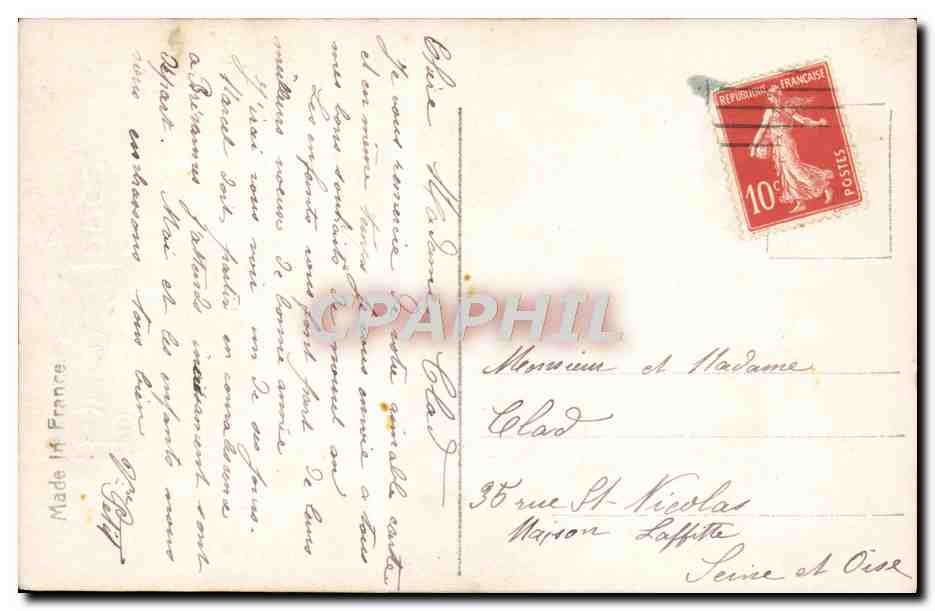 Chère Madame Clad
Je vous remercie de votre aimable carte
et en même temps je vous envie a tous
mes bons souhaits de nouvel an
Les enfants vous font part de leurs
meilleurs voeux de bonne année
J'irai vous voir un de ces jours.
Marcel doit partir en convalescence
a
j'attends
sont
départ. Moi et les enfants nous
vous embrassons tous bien
Petit
Made In France
REPUBLIQUE FRANÇAISE
10c
POSTES
CPAPHIL
Monsieur et Madame
Clad
35 rue St-Nicolas
Maison Laffitte
Seine et Oise